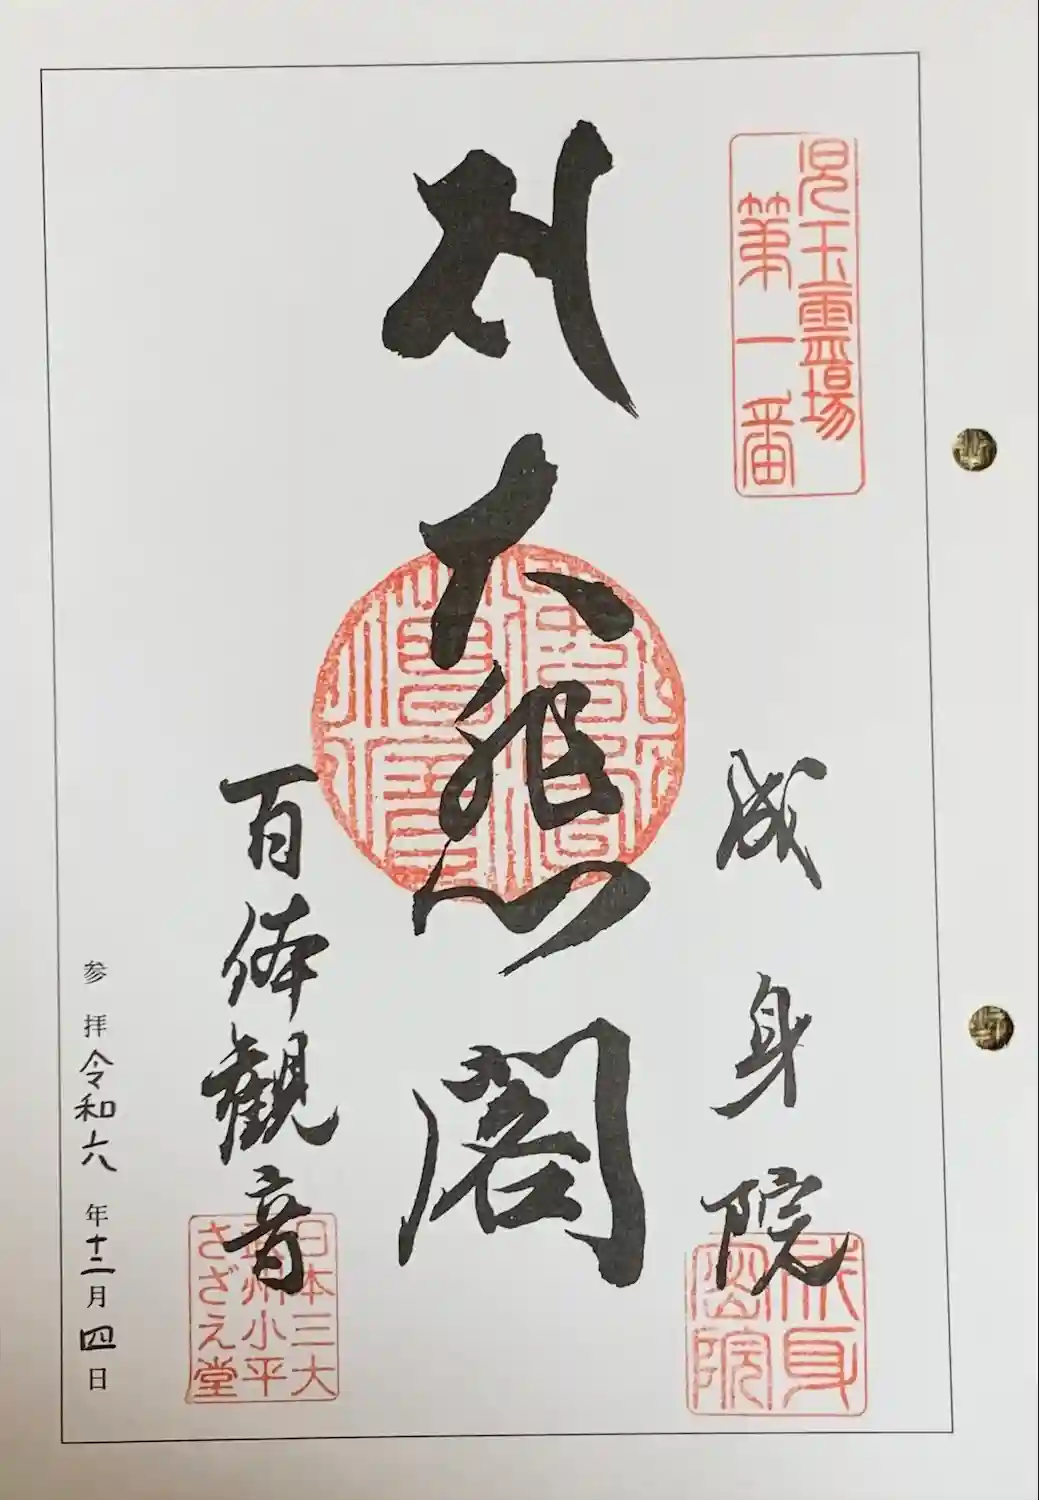 児玉霊場
第一番
成身院
成身
密院
大悲閣
百体観音
日本三大
武州小平
さざえ堂
参拝令和六年十二月四日